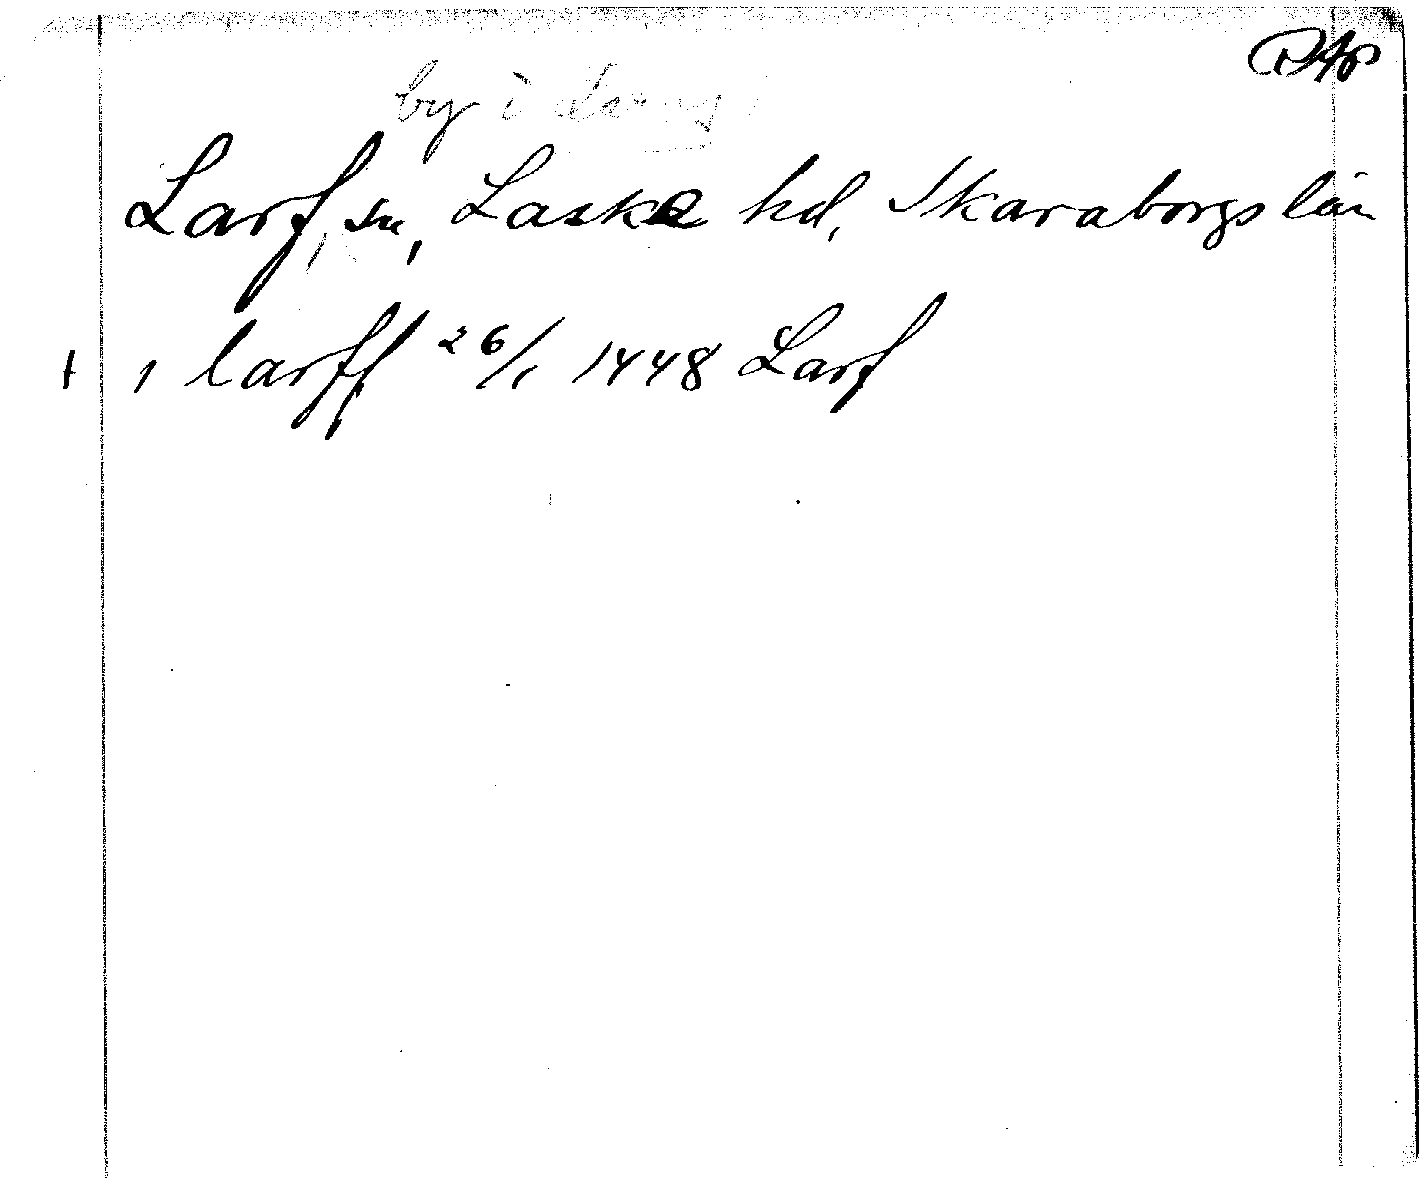 by i
Larf, sn, Laske hd, Skaraborgs län
+ , larff 26/1 1448 Larf